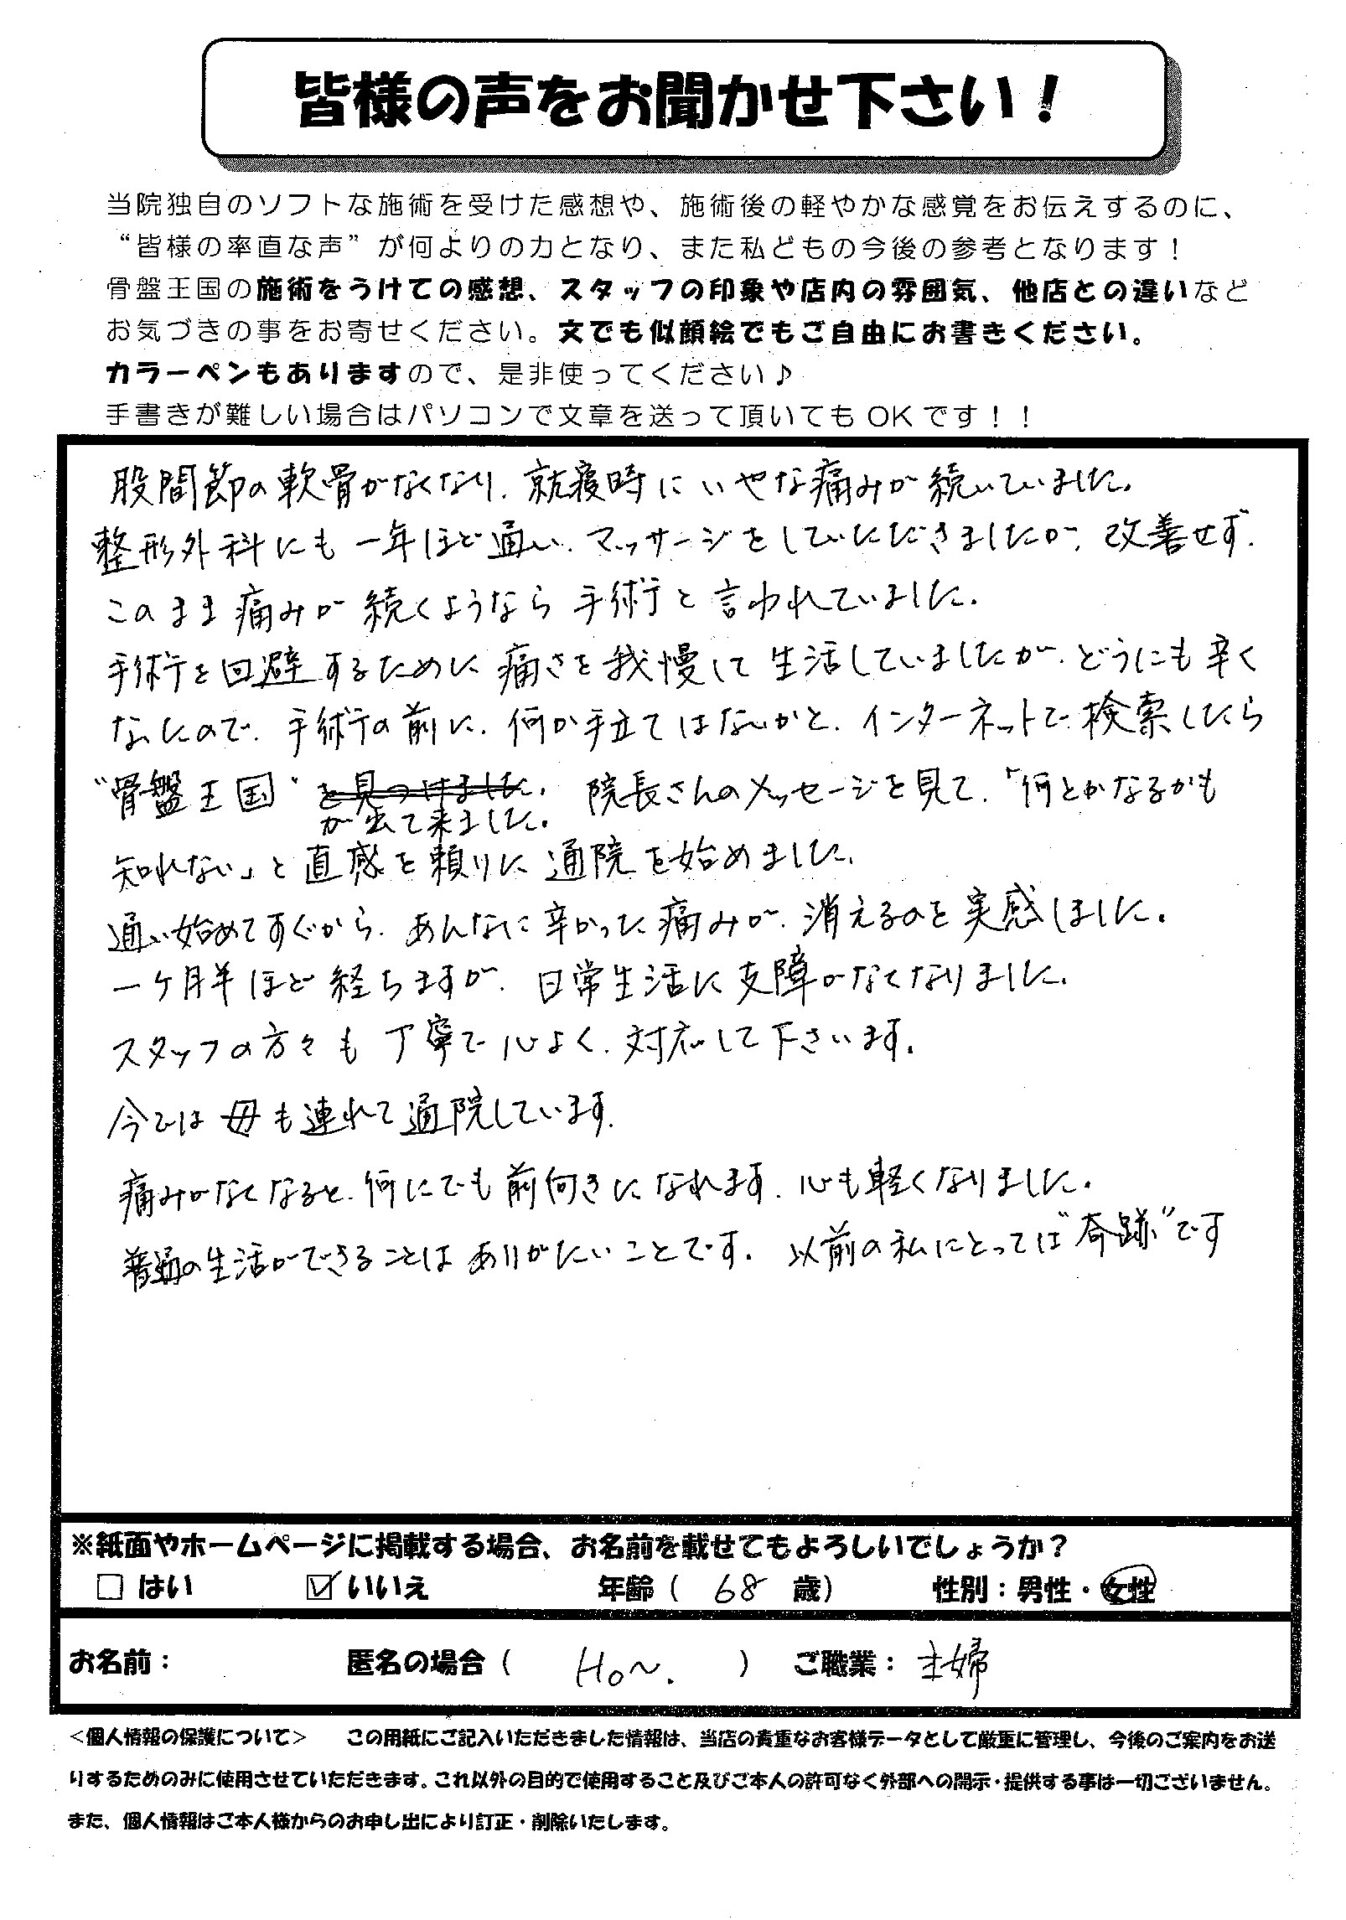 皆様の声をお聞かせ下さい！
当院独自のソフトな施術を受けた感想や、施術後の軽やかな感覚をお伝えするのに、
“皆様の率直な声”が何よりの力となり、また私どもの今後の参考となります！
骨盤王国の施術をうけての感想、スタッフの印象や店内の雰囲気、他店との違いなど
お気づきの事をお寄せください。文でも似顔絵でもご自由にお書きください。
カラーペンもありますので、是非使ってください♪
手書きが難しい場合はパソコンで文章を送って頂いてもOKです！！
股間節の軟骨がなくなり、就寝時にいやな痛みが続いていました。
整形外科にも一年ほど通い、マッサージをしていただきましたが、改善せず、
このまま痛みが続くようなら手術と言われていました。
手術を回避するために痛さを我慢して生活していましたが、どうにも辛く
なったので、手術の前に、何か手立てはないかと、インターネットで検索したら
“骨盤王国”を見つけました。院長さんのメッセージを見て、「何とかなるかも
が出て来ました。
知れない」と直感を頼りに通院を始めました。
通い始めてすぐから、あんなに辛かった痛みが、消えるのを実感しました。
一ヶ月半ほど経ちますが、日常生活に支障がなくなりました。
スタッフの方々も丁寧で心よく、対応して下さいます。
今では母も連れて通院しています。
痛みがなくなると、何にでも前向きになれます。心も軽くなりました。
普通の生活ができることはありがたいことです。以前の私にとっては“奇跡”です
※紙面やホームページに掲載する場合、お名前を載せてもよろしいでしょうか？
□ はい ☑ いいえ 年齢（ 68 歳） 性別：男性・女性
お名前： 匿名の場合（ Ho～. ） ご職業：主婦
＜個人情報の保護について＞ この用紙にご記入いただきました情報は、当店の貴重なお客様データとして厳重に管理し、今後のご案内をお送
りするためのみに使用させていただきます。これ以外の目的で使用すること及びご本人の許可なく外部への開示・提供する事は一切ございません。
また、個人情報はご本人様からのお申し出により訂正・削除いたします。